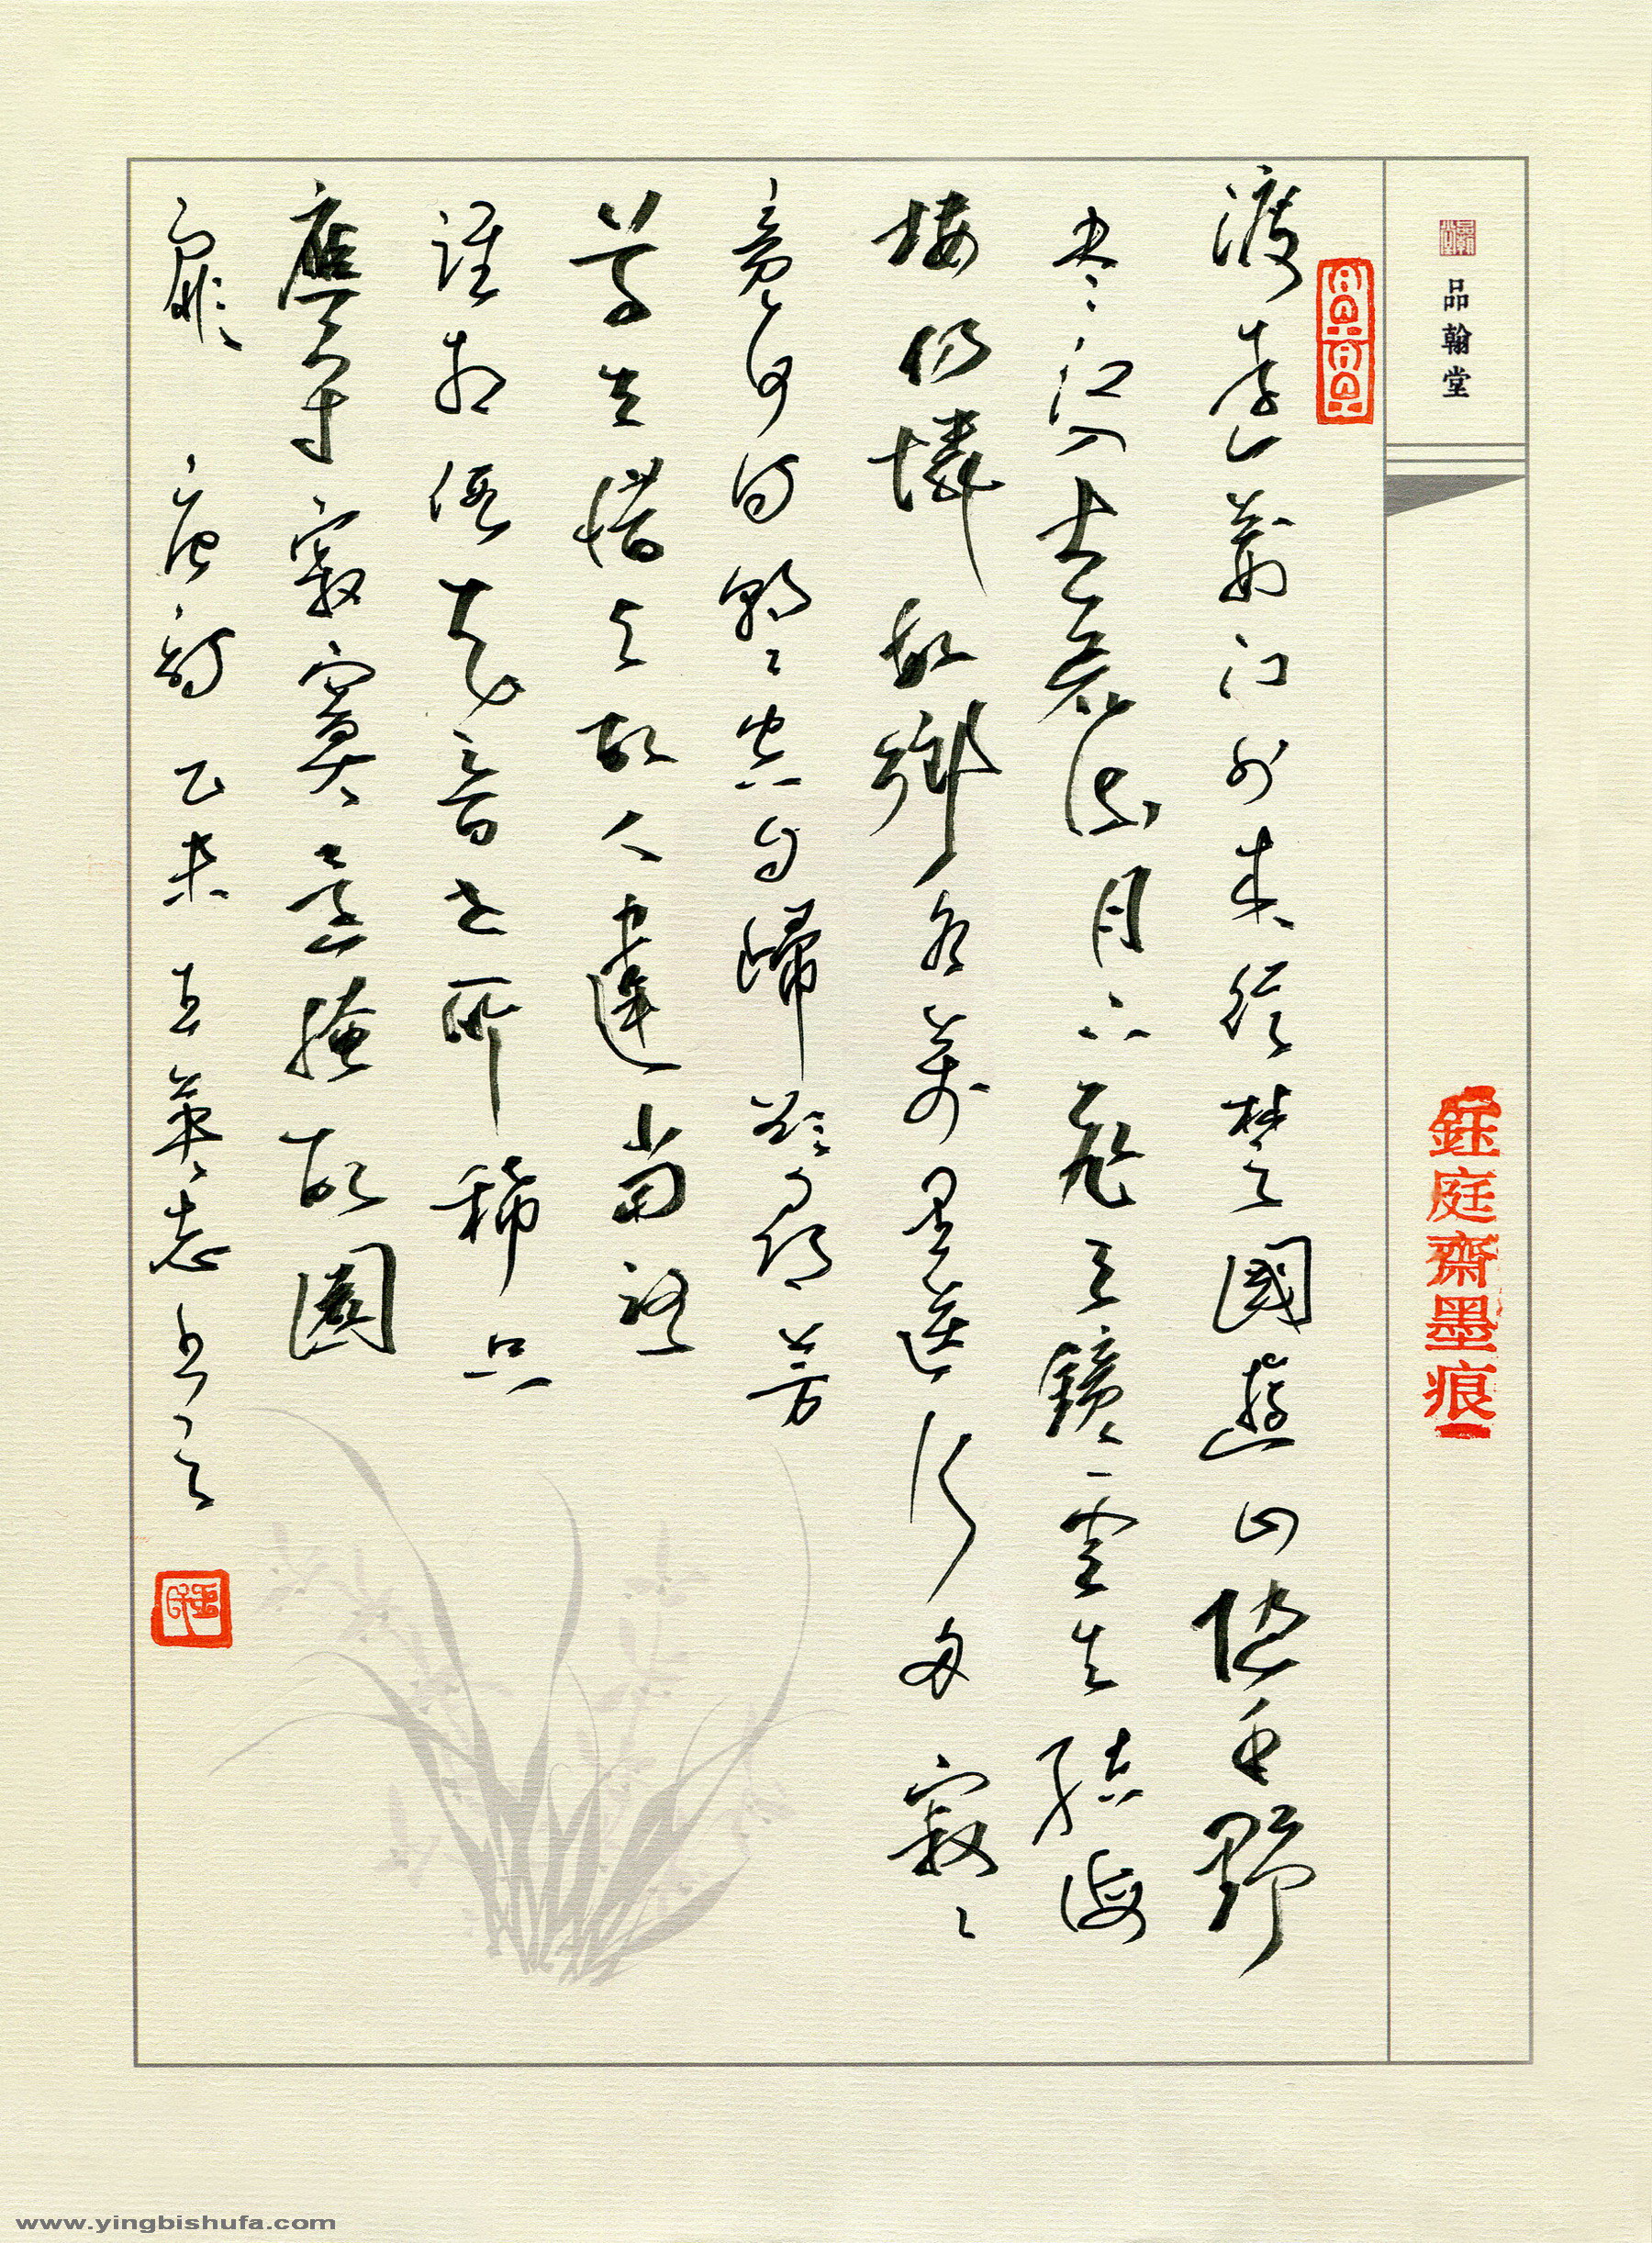 品翰堂
鈺庭齋墨痕
渡遠荊門外來從楚國遊山隨平野
盡江入大荒流月下飛天鏡雲生結海
樓仍憐故鄉水萬里送行舟寂寂
竟何待朝朝空自歸欲尋芳
草去惜與故人違當路
誰相假知音世所稀只
應守寂寞還掩故園
扉 唐詩 乙未 王英志書之
www.yingbishufa.com